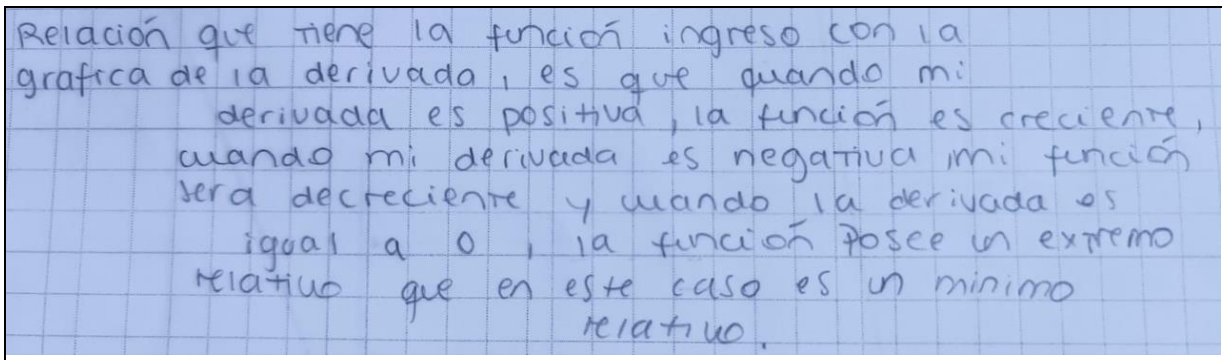 Relación que tiene la función ingreso con la
grafica de la derivada, es que quando mi
derivada es positiva, la función es creciente,
cuando mi derivada es negativa, mi función
sera decreciente y cuando la derivada es
igual a 0, la función posee un extremo
relativo que en este caso es un minimo
relativo.